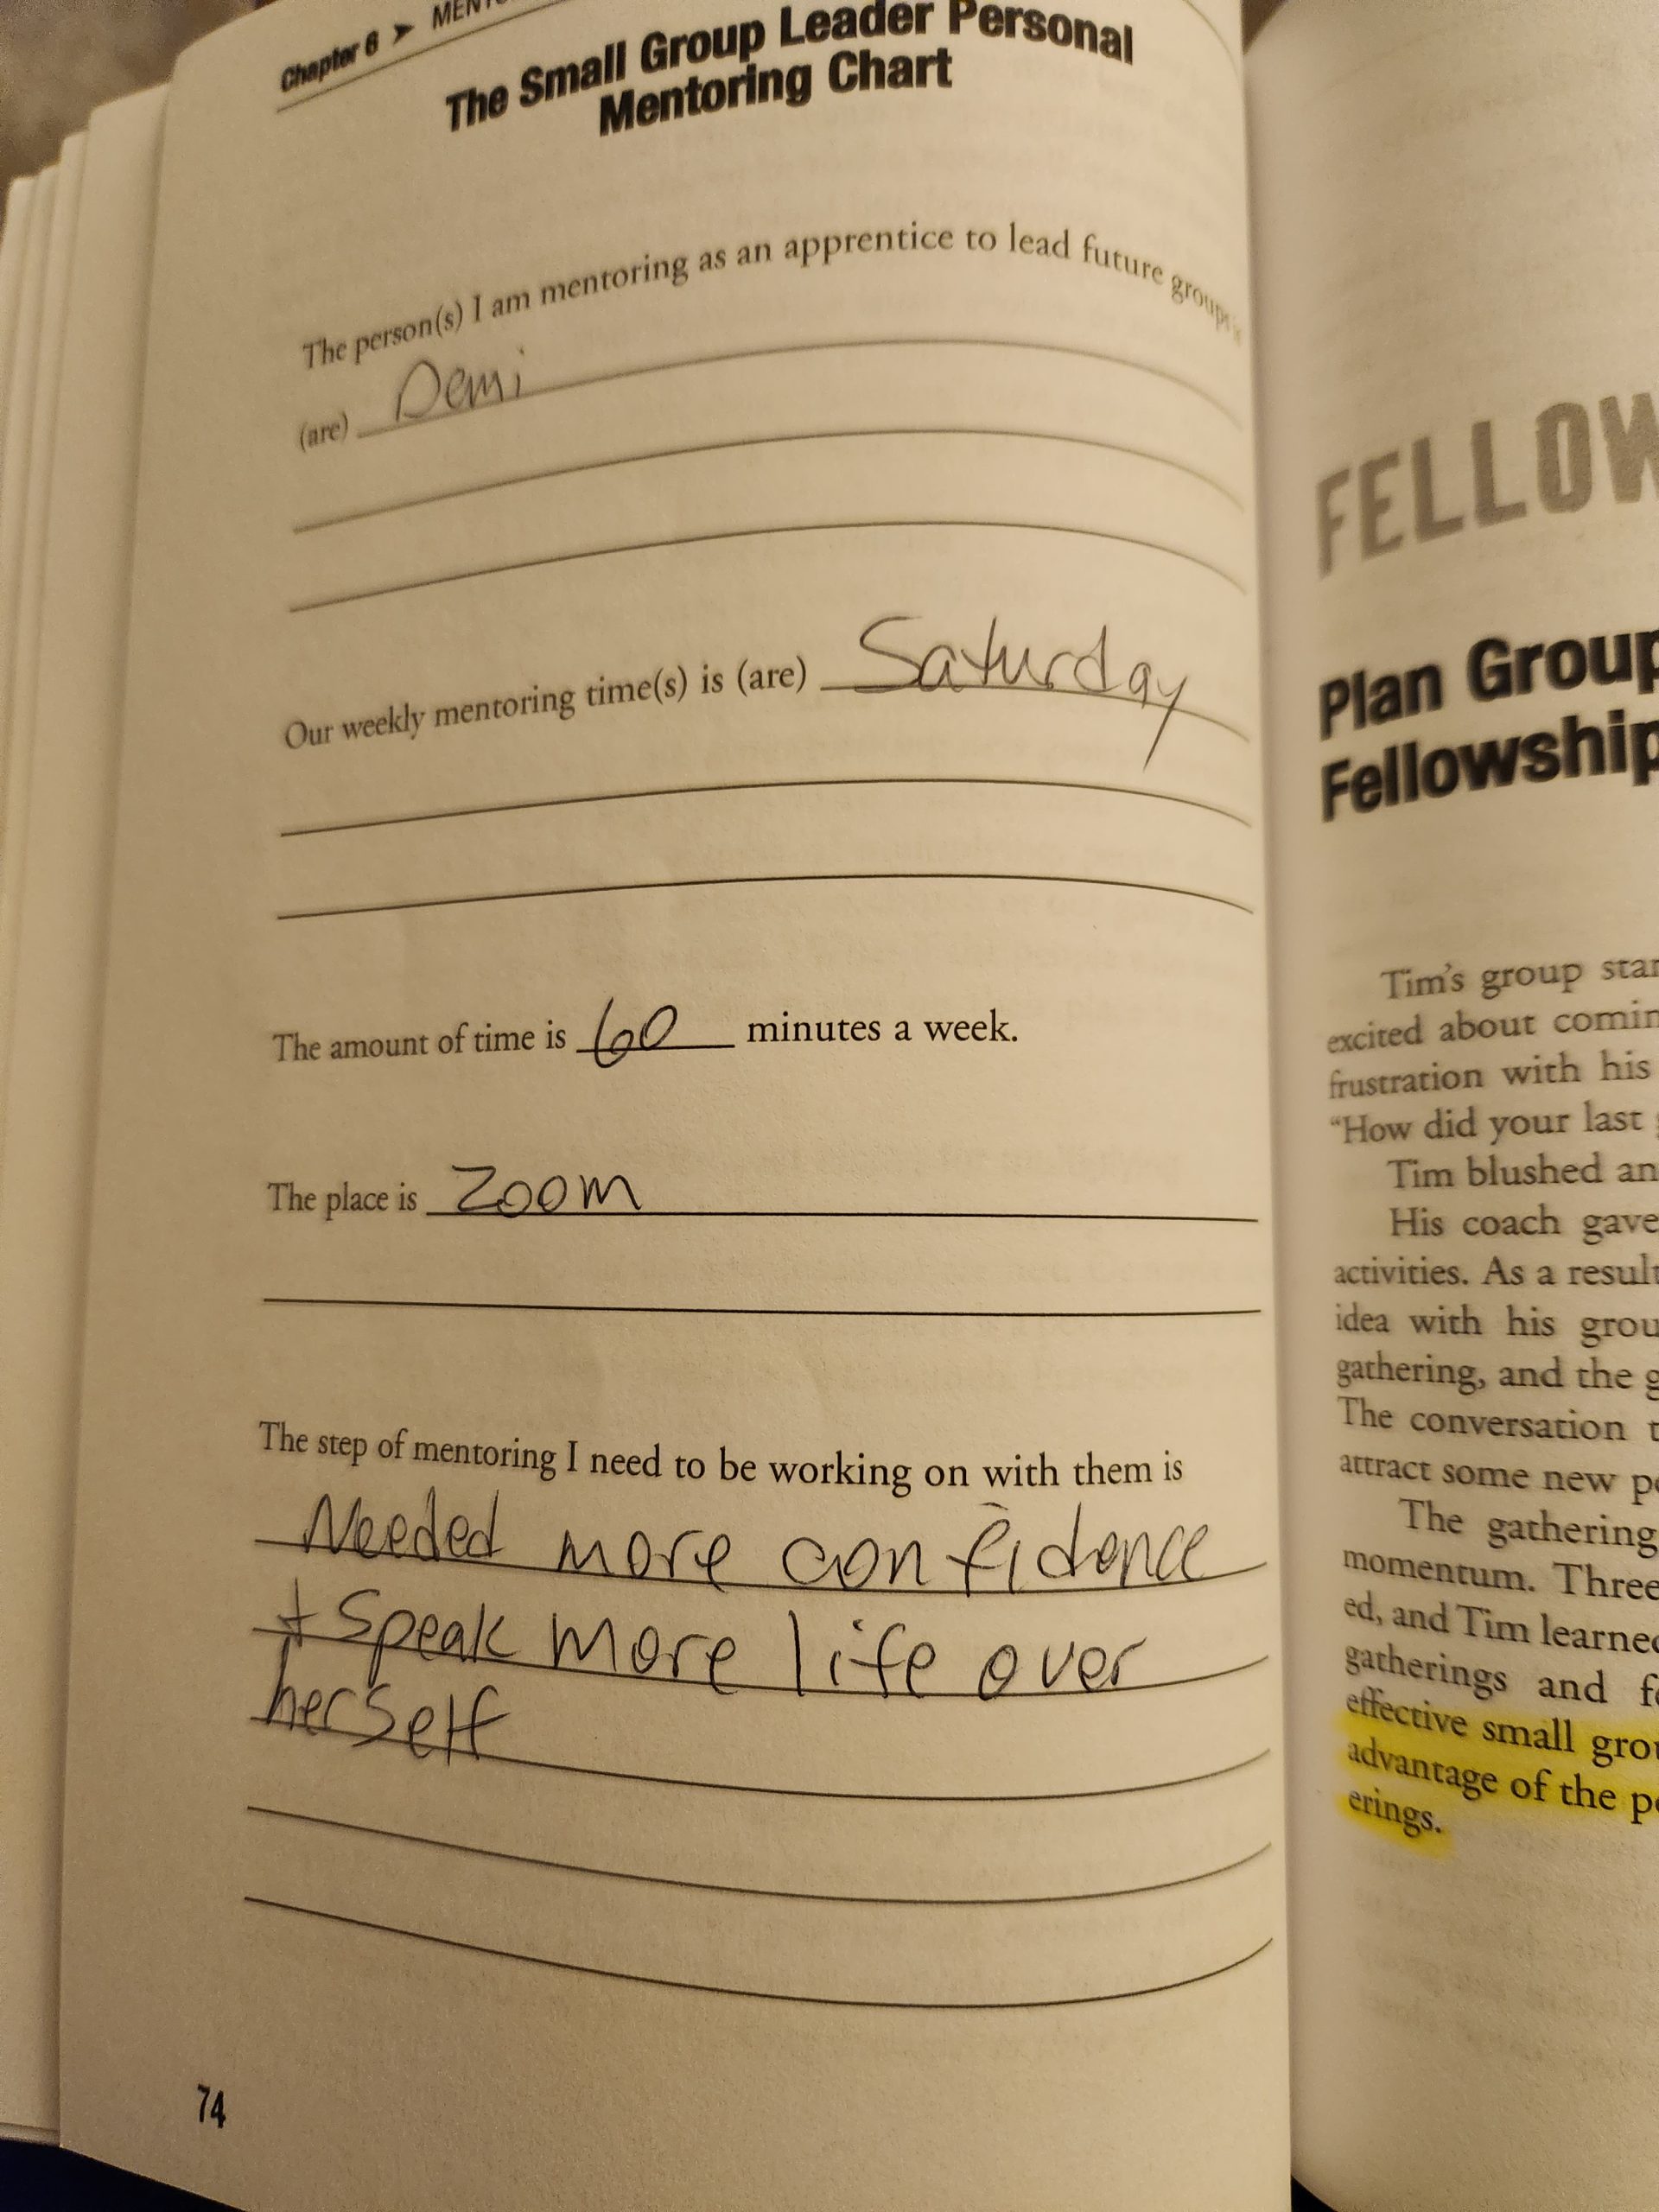 Chapter 6 ➤
The Small Group Leader Personal
Mentoring Chart
The person(s) I am mentoring as an apprentice to lead future groups is
(are) Demi
Our weekly mentoring time(s) is (are) Saturday
The amount of time is 60 minutes a week.
The place is Zoom
The step of mentoring I need to be working on with them is
Needed more confidence
+ Speak more life over
herself
74
Plan Group
Fellowship
Tim's group
excited about
frustration with his
“How did your last
Tim blushed
His coach gave
activities. As a
idea with his
gathering, and the
The conversation
attract some new
The gathering
momentum. Three
ed, and Tim learned
gatherings and
effective small
advantage of the
erings.